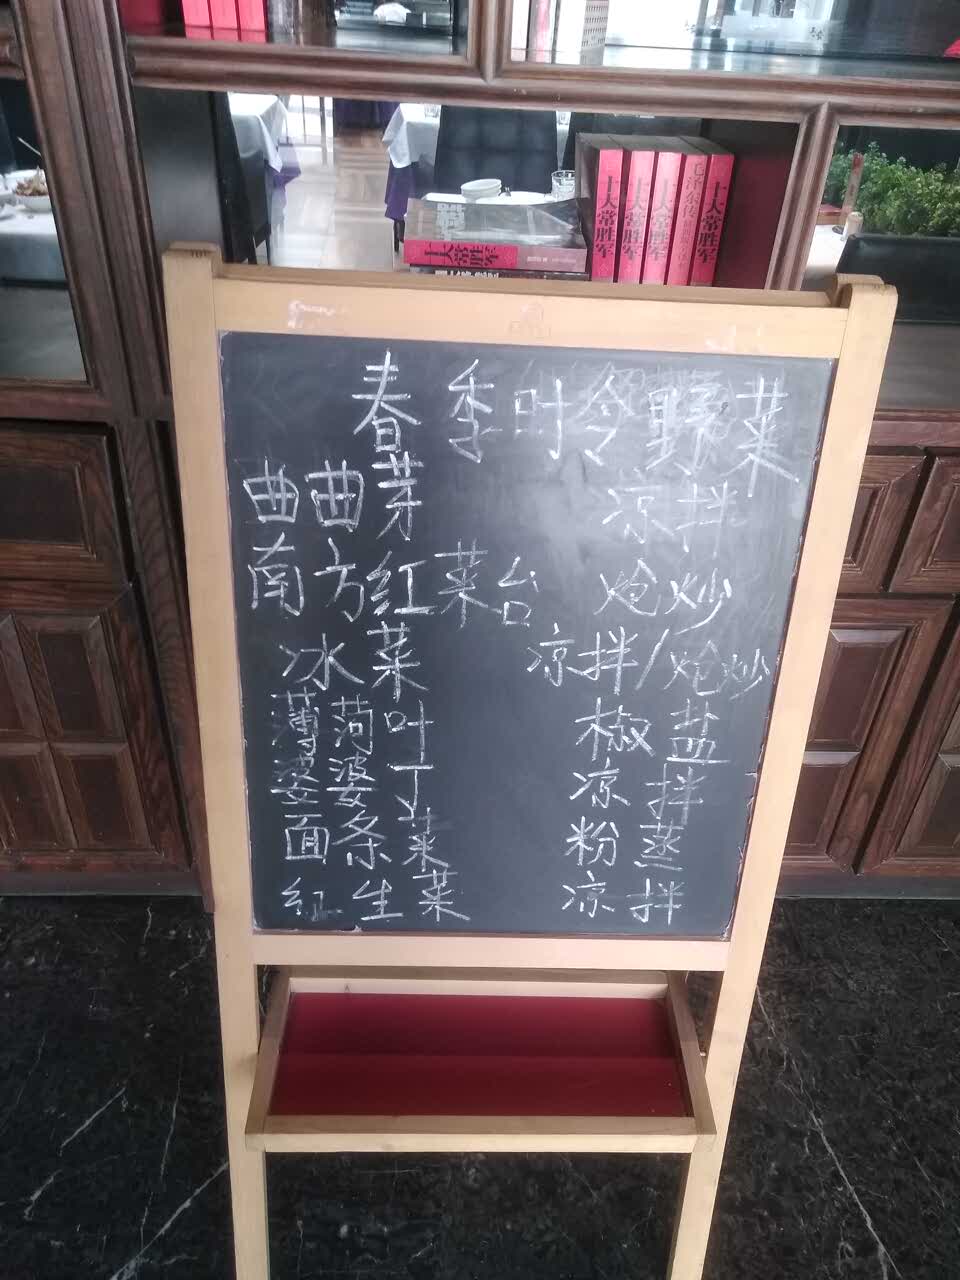 十大常胜军
十大常胜军
十大常胜军
十大常胜军
毛泽东传
十大常胜军
春季叶令野菜
曲曲芽 凉拌
南方红菜台 炝炒
冰菜 凉拌/炝炒
薄荷叶 椒盐
婆婆丁 凉拌
面条菜 粉蒸
红生菜 凉拌